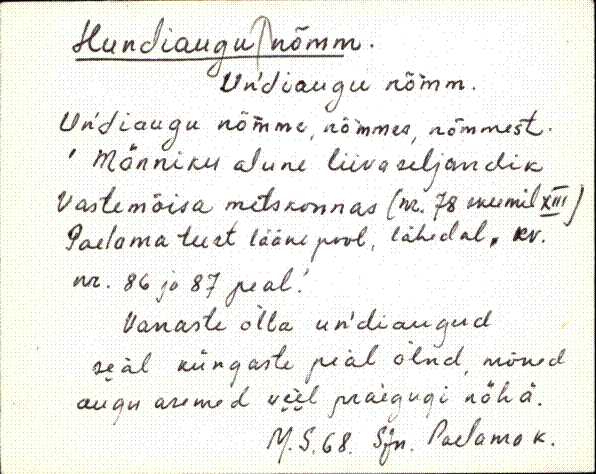 Hundiaugu nõmm.
Un'diaugu nõmm.
Un'diaugu nõmme, nõmmes, nõmmest.
' Männiku alune liivaseljandik
Vastemõisa metskonnas (nr. 78 skeemil XIII)
Paelama teest lääne pool, lähedal, kv.
nr. 86 ja 87 peal.'
Vanaste õlla un'diaugud
seäl küngaste peäl õlnd, mõned
augu asemed veel praegugi nähä.
M.S. 68. Sjn. Paelama k.